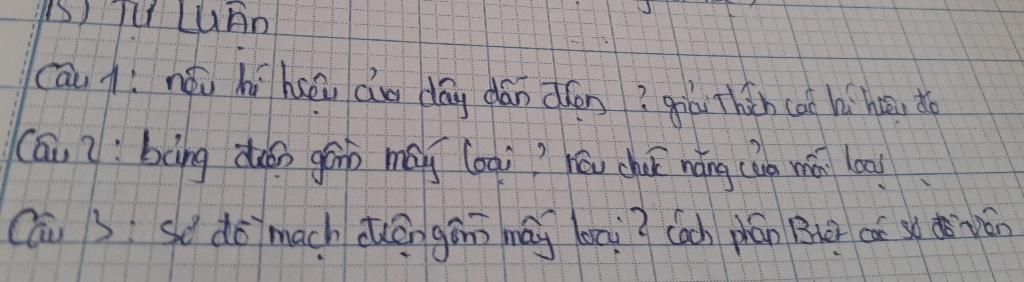 B) Tự Luận
Câu 1: nêu kí hiệu của dây dẫn điện ? giải thích các kí hiệu đó
Câu 2: bảng điện gồm mấy loại? nêu chức năng của mỗi loại
Câu 3: sơ đồ mạch điện gồm mấy loại? Cách phân Biệt các sơ đồ trên